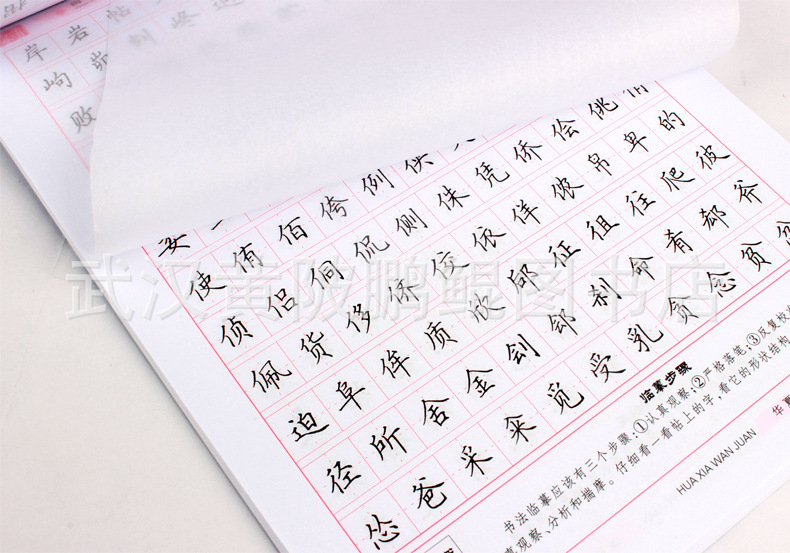 岸 岩 帖
岣 峁
败
使 侑 佰 侉 例 侠
侦 侣 侗 侃 侧 侏 凭 侨 侩 佻
佩 货 侈 侪 佼 依 佯 侬 帛 卑 的
迫 阜 侔 质 欣 邱 征 徂 往 爬 彼
径 所 舍 金 刽 郐 刹 命 肴 郄 斧
怂 爸 采 籴 觅 受 乳 贪 念 贫
临摹步骤
书法临摹应该有三个步骤:①认真观察;②严格落笔;③反复校
真观察、分析和揣摩。仔细看一看帖上的字,看它的形状结构
HUA XIA WAN JUAN
华夏
武汉黄陂鹏鲲图书店